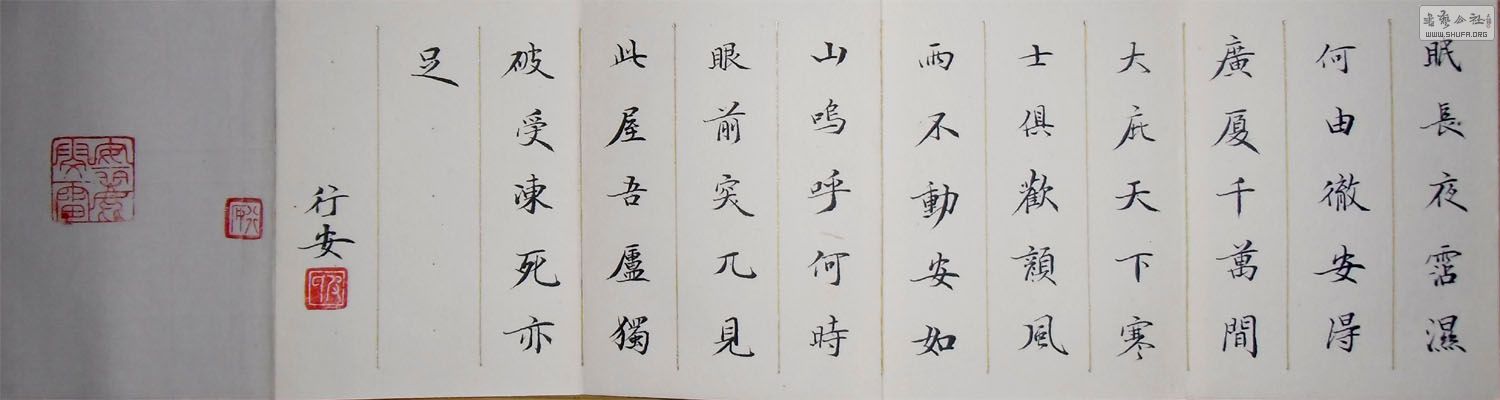 眠長夜霑濕
何由徹安得
廣厦千萬間
大庇天下寒
士俱歡顔風
雨不動安如
山嗚呼何時
眼前突兀見
此屋吾廬獨
破受凍死亦
足
行安
書藝公社
WWW.SHUFA.ORG